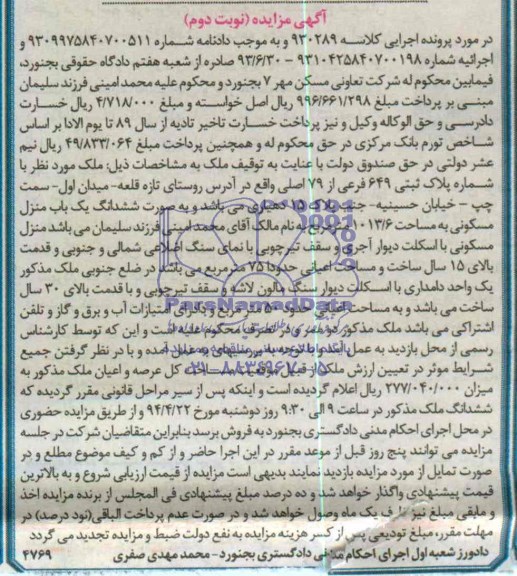 آگهی مزایده (نوبت دوم)
در مورد پرونده اجرایی کلاسه ۹۳۰۲۸۹ و به موجب دادنامه شماره ۹۳۰۹۹۷۵۸۴۰۷۰۰۵۱۱ و
اجرائیه شماره ۹۳۱۰۴۲۵۸۴۰۷۰۰۱۹۸ – ۹۳/۶/۳۰ صادره از شعبه هفتم دادگاه حقوقی بجنورد،
فیمابین محکوم له شرکت تعاونی مسکن مهر ۷ بجنورد و محکوم علیه محمد امینی فرزند سلیمان
مبنی بر پرداخت مبلغ ۹۹۶/۶۶۱/۲۹۸ ریال اصل خواسته و مبلغ ۴/۷۱۸/۰۰۰ ریال خسارت
دادرسی و حق الوکاله وکیل و نیز پرداخت خسارت تاخیر تادیه از سال ۸۹ تا یوم الادا بر اساس
شاخص تورم بانک مرکزی در حق محکوم له و همچنین پرداخت مبلغ ۴۹/۸۳۳/۰۶۴ ریال نیم
عشر دولتی در حق صندوق دولت با عنایت به توقیف ملک به مشخصات ذیل: ملک مورد نظر با
شماره پلاک ثبتی ۶۴۹ فرعی از ۷۹ اصلی واقع در آدرس روستای تازه قلعه- میدان اول- سمت
چپ – خیابان حسینیه- جنب پلاک ۱۵ دهیاری می باشد و به صورت ششدانگ یک باب منزل
مسکونی به مساحت ۰۱۳/۶ مترمربع به نام مالک آقای محمد امینی فرزند سلیمان می باشد منزل
مسکونی با اسکلت دیوار آجری و سقف تیرچوبی با نمای سنگ اضلاعی شمالی و جنوبی و قدمت
بالای ۱۵ سال ساخت و مساحت اعیانی حدودا ۷۵ مترمربع می باشد در ضلع جنوبی ملک مذکور
یک واحد دامداری با اسکلت دیوار سنگ مالون لاشه و سقف تیرچوبی و با قدمت بالای ۳۰ سال
ساخت می باشد و به مساحت اعیانی حدود مترمربع و دارای امتیازات آب و برق و گاز و تلفن
اشتراکی می باشد ملک مذکور در تصرف محکوم علیه است و این که توسط کارشناس
رسمی از محل بازدید به عمل آمد و با توجه به بررسیهای به عمل آمده و با در نظر گرفتن جمیع
شرایط موثر در تعیین ارزش ملک از قبیل موقعیت مساحت کل عرصه و اعیان ملک مذکور به
میزان ۲۷۷/۰۴۰/۰۰۰ ریال اعلام گردیده است و اینکه پس از سیر مراحل قانونی مقرر گردیده که
ششدانگ ملک مذکور در ساعت ۹ الی ۹:۳۰ روز دوشنبه مورخ ۹۴/۴/۲۲ و از طریق مزایده حضوری
در محل اجرای احکام مدنی دادگستری بجنورد به فروش برسد بنابراین متقاضیان شرکت در جلسه
مزایده می توانند پنج روز قبل از موعد مقرر در این اجرا حاضر و از کم و کیف موضوع مطلع و در
صورت تمایل از مورد مزایده بازدید نمایند بدیهی است مزایده از قیمت ارزیابی شروع و به بالاترین
قیمت پیشنهادی واگذار خواهد شد و ده درصد مبلغ پیشنهادی فی المجلس از برنده مزایده اخذ
و مابقی مبلغ نیز ظرف یک ماه وصول خواهد شد و در صورت عدم پرداخت الباقی(نود درصد) در
مهلت مقرر، مبلغ تودیعی پس از کسر هزینه مزایده به نفع دولت ضبط و مزایده تجدید می گردد
دادورز شعبه اول اجرای احکام مدنی دادگستری بجنورد – محمد مهدی صفری ۴۷۶۹
ParsNamadData
۰۲۱-۸۸۳۴۹۶۷۰-۱۵